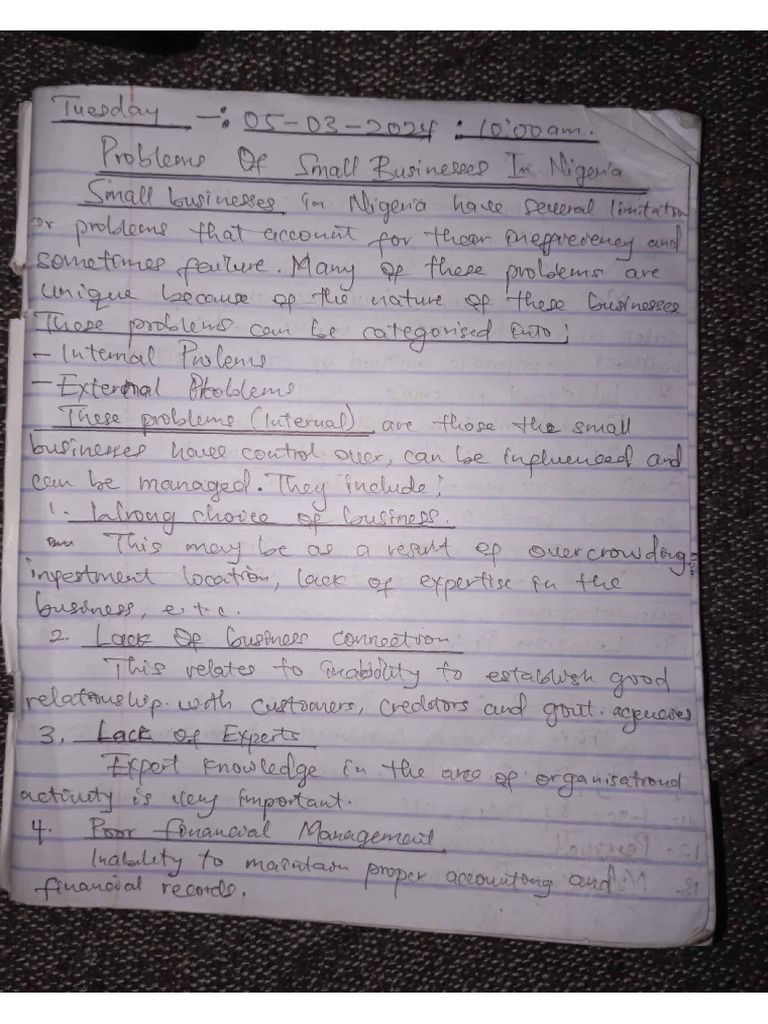 Tuesday -: 05-03-2024 : 10:00am.
Problems Of Small Businesses In Nigeria
Small businesses in Nigeria have several limitation
or problems that account for their inefficiency and
sometimes failure. Many of these problems are
unique because of the nature of these businesses
These problems can be categorised into;
- Internal Prolems
- External Problems
These problems (Internal) are those the small
businesses have control over, can be influenced and
can be managed. They include;
1. Wrong choice of business.
This may be as a result of overcrowding,
investment location, lack of expertise in the
business, e.t.c.
2. Lack Of business connection
This relates to inability to establish good
relationship with customers, creditors and govt. agencies
3. Lack of Experts
Expert knowledge in the area of organisational
activity is very important.
4. Poor financial Management
Inability to maintain proper accounting and
financial records.